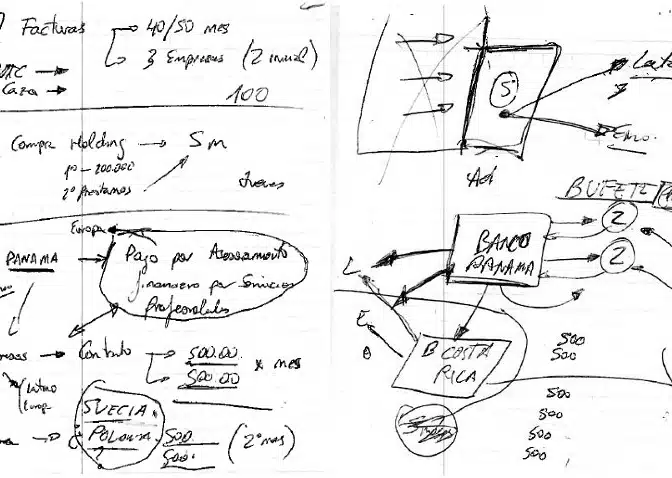 Facturas → 40/50 mes
3 Empresas (2 inicial)
Casa →
100
Compra Holding → 5 m
1º - 200.000
2º Prestamos
Jueves
Europa
PANAMA → Pago por Asesoramiento
financiero por Servicios
Profesionales
Contrato → 500.00 x mes
500.00
Latino
Europ
SUECIA
POLONIA
?
500 (2º mes)
500
5
Adi
BUFETE
BANCO
PANAMA
2
2
L
E
B COSTA
RICA
500
500
500
500
500
500